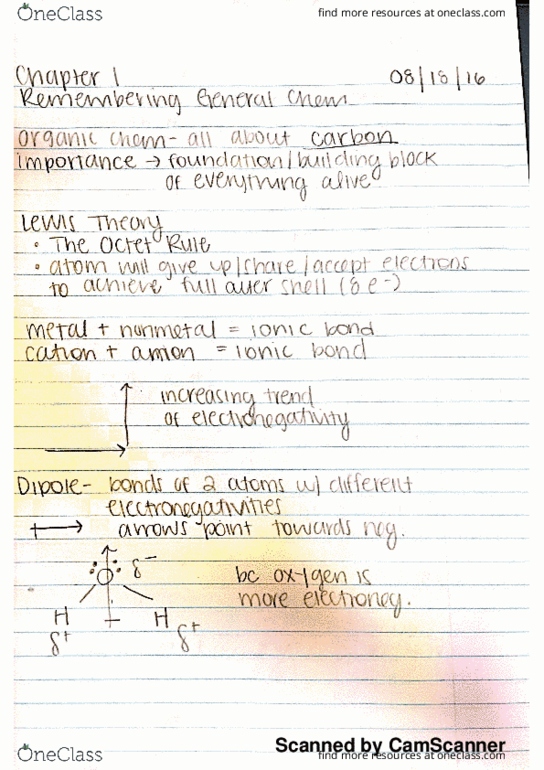 OneClass
find more resources at oneclass.com
Chapter 1 08/18/16
Remembering General Chem
organic chem- all about carbon
importance → foundation/building block
of everything alive
Lewis Theory
• The Octet Rule
• atom will give up/share/accept electrons
to achieve full outer shell (8 e-)
metal + nonmetal = ionic bond
cation + anion = ionic bond
increasing trend
of electronegativity
Dipole- bonds of 2 atoms w/ different
electronegativities
arrows point towards neg.
O δ-
bc oxygen is
more electroneg.
H H
δ+ δ+
Scanned by CamScanner
OneClass
find more resources at oneclass.com